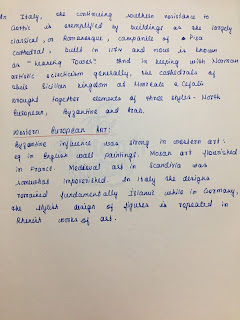 In Italy, the continuing southern resistance to
Gothic is exemplified by buildings as the largely
classical, or Romanesque, campanile of Pisa
cathedral, built in 1174 and now is known
as "Leaning Tower". And in keeping with Norman
artistic eclecticism generally, the cathedrals of
their Sicilian kingdom as Monreale & Cefalù
brought together elements of three styles - North
European, Byzantine and Arab.
Western European Art:
Byzantine influence was strong in western art:
eg in English wall paintings. Mosan art flourished
in France. Medieval art in Scandivia was
somewhat impoverished. In Italy the designs
remained fundamentally Islamic while in Germany,
the stylish design of figures is repeated in
Rhenish works of art.